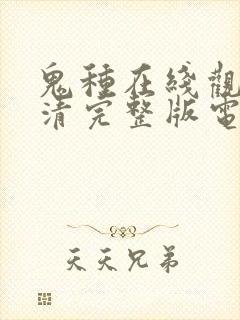 鬼種在綫觀
清完整版電
天天兄弟